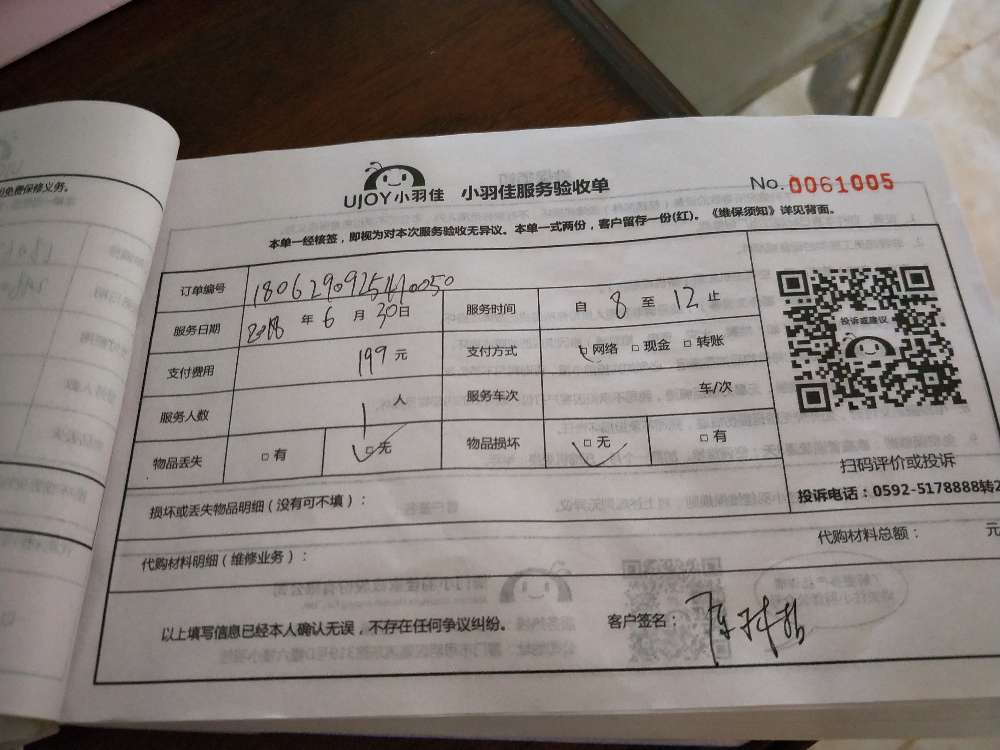 UJOY小羽佳 小羽佳服务验收单
No.0061005
本单一经核签，即视为对本次服务验收无异议。本单一式两份，客户留存一份(红)。《维保须知》详见背面。
订单编号
服务日期 2018 年 6 月 30日 服务时间 自 8 至 12 止
支付费用 199 元 支付方式 □网络 □现金 □转账
服务人数 1 人 服务车次 车/次
物品丢失 □有 □无 物品损坏 □无 □有
投诉或建议
扫码评价或投诉
投诉电话：0592-5178888转2
损坏或丢失物品明细（没有可不填）：
代购材料明细（维修业务）： 代购材料总额： 元
以上填写信息已经本人确认无误，不存在任何争议纠纷。 客户签名：
免费保修义务。